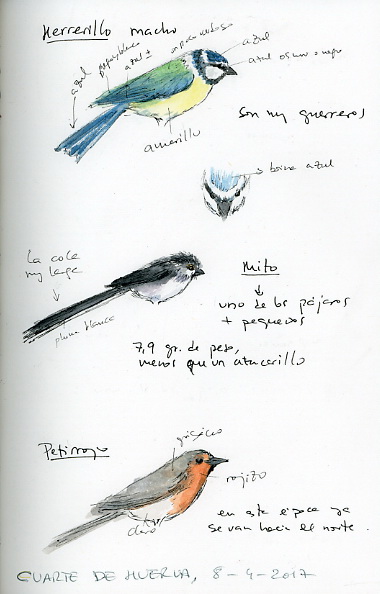 Herrerillo macho
azul
azul ±
azul
azul oscuro o negro
amarillo
Son muy guerreros
boina azul
La cola
muy larga
pluma blanca
Mito
uno de los pájaros
+ pequeños
7,9 gr. de peso,
menos que un azucarillo
Petirrojo
grisáceo
rojizo
claro
en esta época ya
se van hacia el norte.
CUARTE DE HUERVA, 8-4-2017